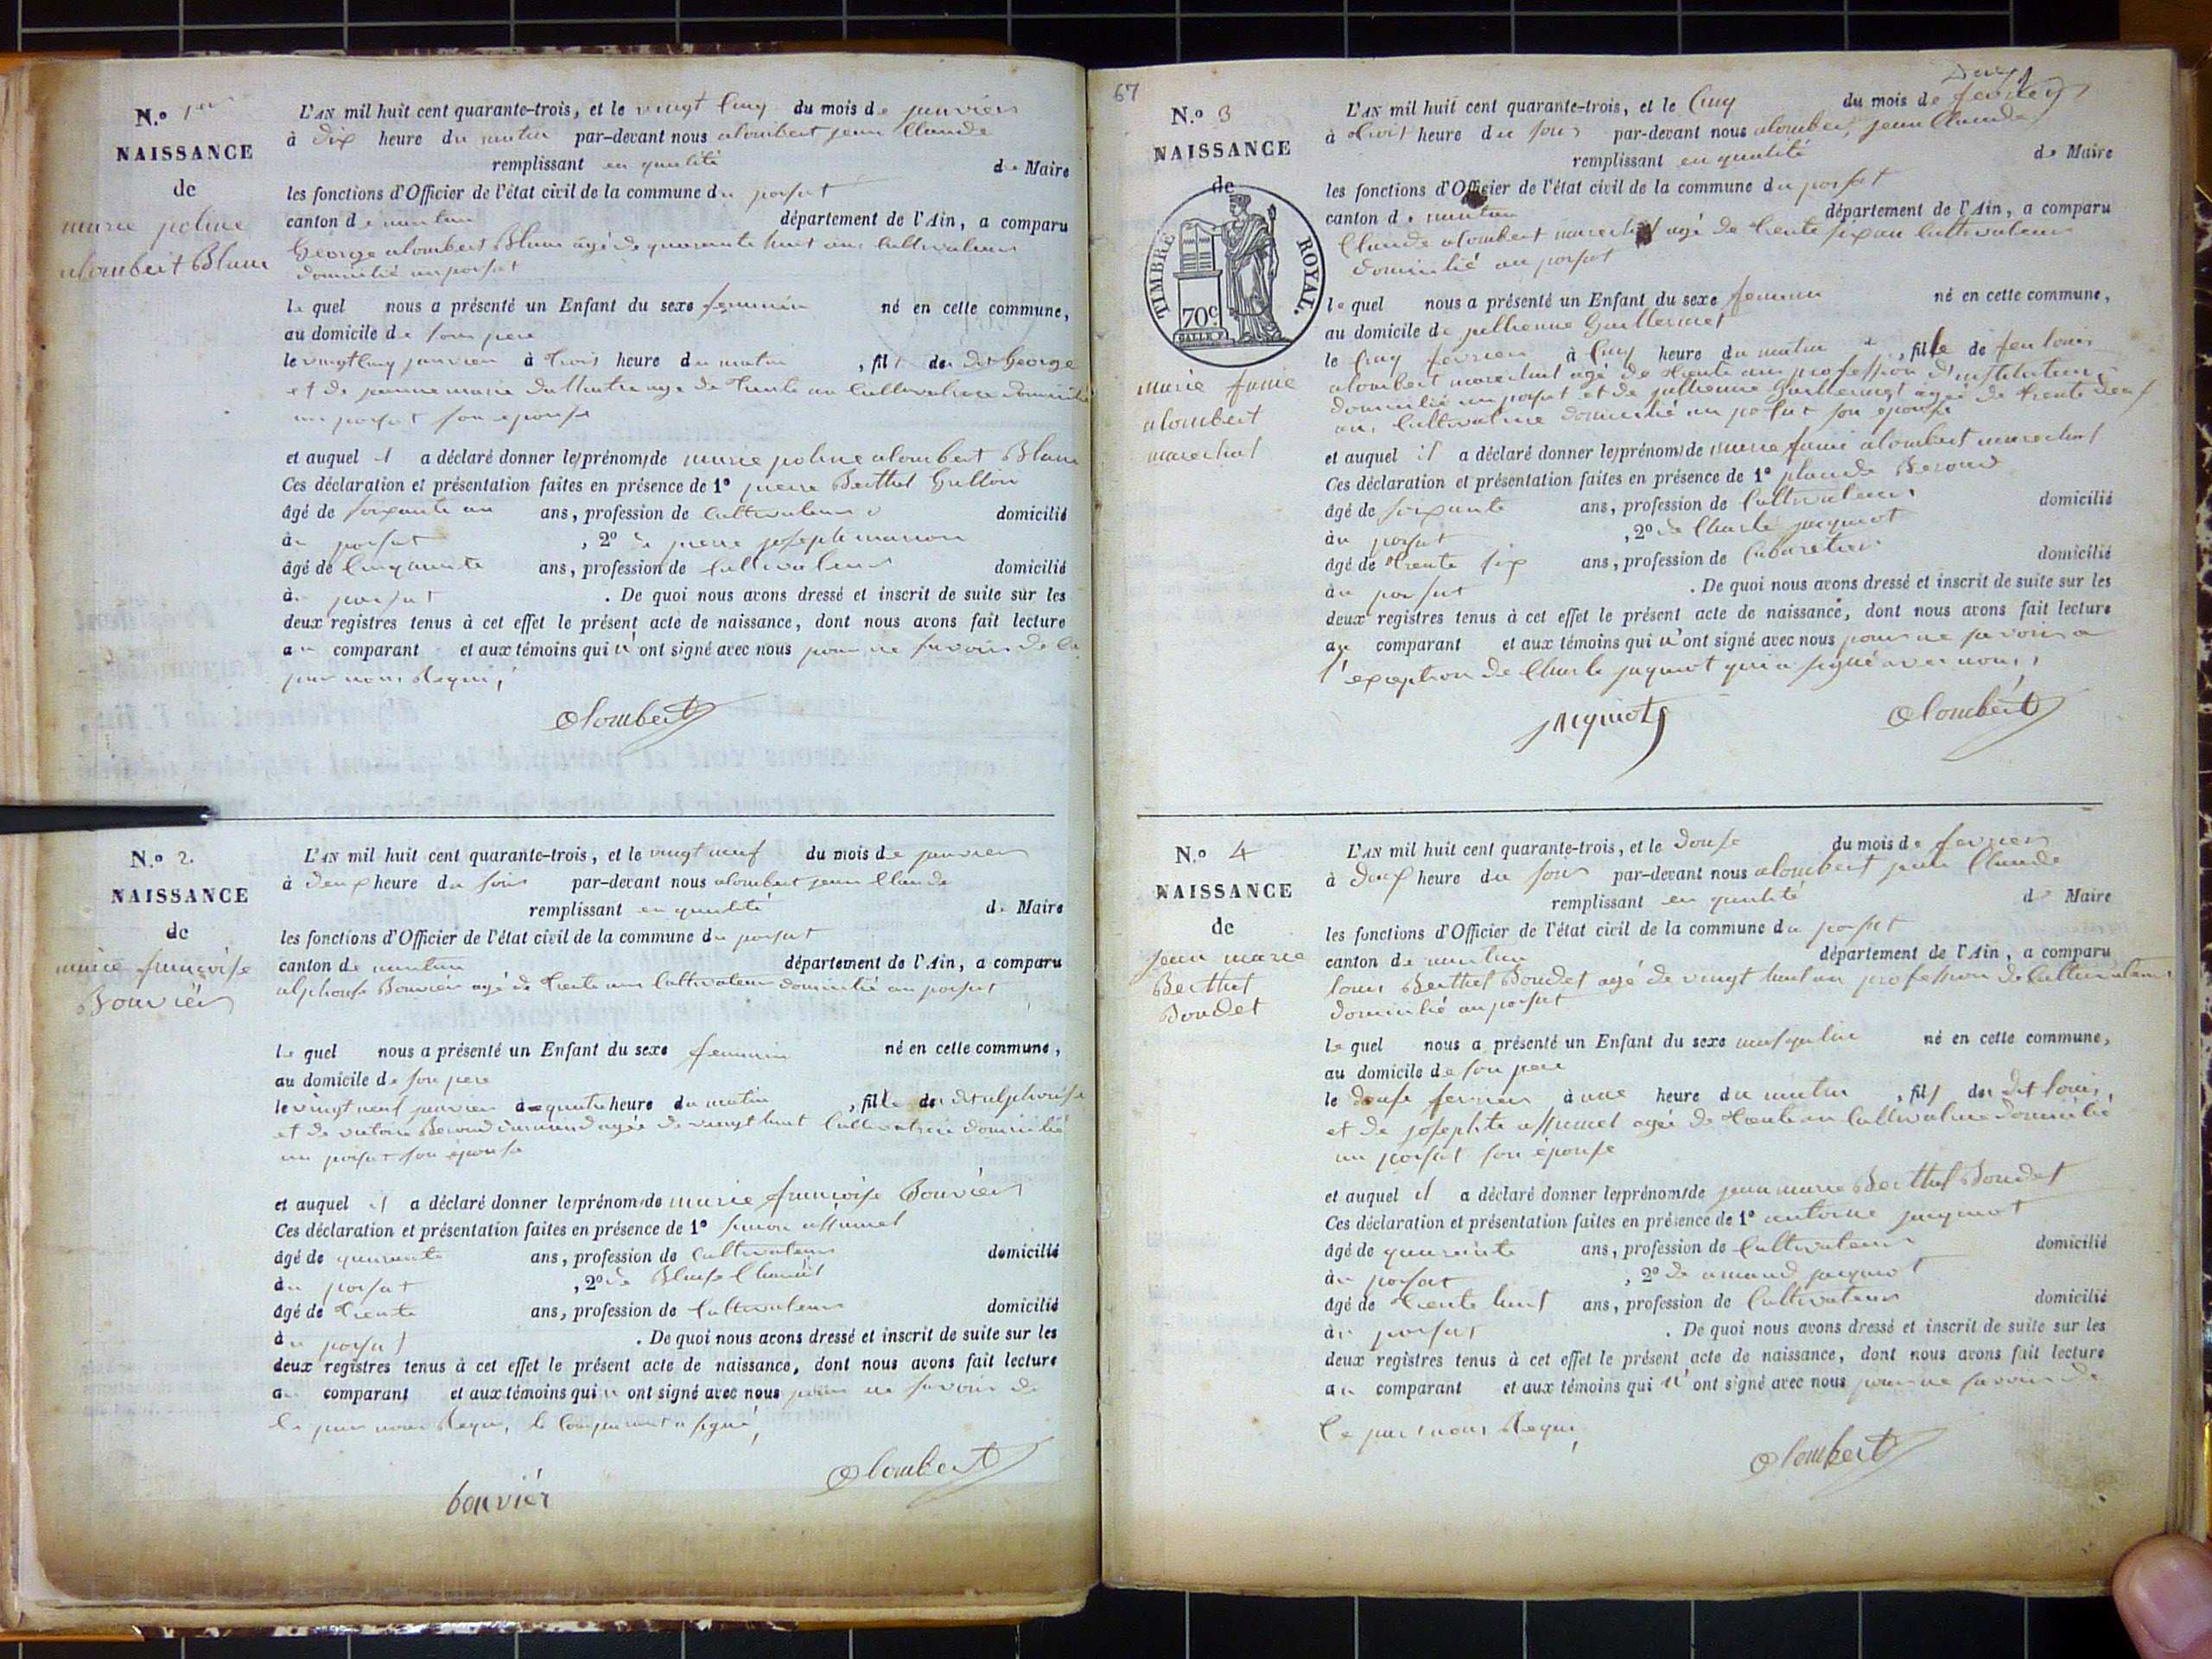 N.º 1er
NAISSANCE
de
marie poline
alombert Blanc
L'AN mil huit cent quarante-trois, et le vingt cinq du mois de janvier
à dix heure du matin par-devant nous alombert jean Claude
remplissant en qualité de Maire
les fonctions d'Officier de l'état civil de la commune du poisat
canton de nantua département de l'Ain, a comparu
George alombert Blanc âgé de quarante huit ans Cultivateur
domicilié au poisat
le quel nous a présenté un Enfant du sexe feminin né en cette commune,
au domicile de son pere
le vingt cinq janvier à trois heure du matin , fil de dit George
et de jeanne marie age de trente un Cultivatrice domicilié
au poisat son épouse
et auquel il a déclaré donner le prénom de marie poline alombert Blanc
Ces déclaration et présentation faites en présence de 1º pierre Berthet Grillon
âgé de soixante un ans, profession de Cultivateur domicilié
au poisat , 2º de pierre joseph marion
âgé de Cinquante ans, profession de Cultivateur domicilié
au poisat . De quoi nous avons dressé et inscrit de suite sur les
deux registres tenus à cet effet le présent acte de naissance, dont nous avons fait lecture
au comparant et aux témoins qui n'ont signé avec nous pour ne savoir de ce
par nous Requi,
Alombert
N.º 2
NAISSANCE
de
marie françoise
Bouvier
L'AN mil huit cent quarante-trois, et le vingt neuf du mois de janvier
à deux heure du soir par-devant nous alombert jean Claude
remplissant en qualité de Maire
les fonctions d'Officier de l'état civil de la commune du poisat
canton de nantua département de l'Ain, a comparu
alphonse Bouvier agé de trente ans Cultivateur domicilié au poisat
le quel nous a présenté un Enfant du sexe feminin né en cette commune,
au domicile de son pere
le vingt neuf janvier à quatre heure du matin , fille de dit alphonse
et de victoire Beroud agée de vingt huit Cultivatrice domicilié
au poisat son épouse
et auquel il a déclaré donner le prénom de marie françoise Bouvier
Ces déclaration et présentation faites en présence de 1º Simon assumel
âgé de quarante ans, profession de Cultivateur domicilié
au poisat , 2º de Blaise
âgé de trente ans, profession de Cultivateur domicilié
au poisat . De quoi nous avons dressé et inscrit de suite sur les
deux registres tenus à cet effet le présent acte de naissance, dont nous avons fait lecture
au comparant et aux témoins qui n ont signé avec nous pour ne savoir de
ce par nous Requi, le Comparant a signé,
Alombert
bouvier
67
N.º 3
NAISSANCE
de
TIMBRE ROYAL.
70c.
marie fanie
alombert
marechal
L'AN mil huit cent quarante-trois, et le Cinq du mois de fevrier
à trois heure du soir par-devant nous alombert jean Claude
remplissant en qualité de Maire
les fonctions d'Officier de l'état civil de la commune du poisat
canton de nantua département de l'Ain, a comparu
Claude alombert marechal agé de trente six an Cultivateur
domicilié au poisat
le quel nous a présenté un Enfant du sexe feminin né en cette commune,
au domicile de julienne Guillermet
le Cinq fevrier à Cinq heure du matin , fille de feu louis
alombert marechal agé de trente ans profession d'instituteur
domicilié au poisat et de julienne Guillermet agée de trente deux
ans Cultivatrice domicilié au poisat son épouse
et auquel il a déclaré donner le prénom de marie fanie alombert marechal
Ces déclaration et présentation faites en présence de 1º Claude Beroud
âgé de soixante ans, profession de Cultivateur domicilié
au poisat , 2º de Charle jacquiot
âgé de trente six ans, profession de Cabaretier domicilié
au poisat . De quoi nous avons dressé et inscrit de suite sur les
deux registres tenus à cet effet le présent acte de naissance, dont nous avons fait lecture
au comparant et aux témoins qui n'ont signé avec nous pour ne savoir a
l'exception de Charle jaquiot qui a signé avec nous,
jaquiot
Alombert
N.º 4
NAISSANCE
de
jean marie
Berthet
Boudet
L'AN mil huit cent quarante-trois, et le douse du mois de fevrier
à deux heure du soir par-devant nous alombert jean Claude
remplissant en qualité de Maire
les fonctions d'Officier de l'état civil de la commune du poisat
canton de nantua département de l'Ain, a comparu
louis Berthet Boudet agé de vingt huit an profession de Cultivateur
domicilié au poisat
le quel nous a présenté un Enfant du sexe masqulin né en cette commune,
au domicile de son pere
le douse fevrier à une heure du matin , fils de dit louis
et de josephte assumel agée de trente an Cultivatrice domicilié
au poisat son épouse
et auquel il a déclaré donner le prénom de jean marie Berthet Boudet
Ces déclaration et présentation faites en présence de 1º antoine jacquiot
âgé de quarante ans, profession de Cultivateur domicilié
au poisat , 2º de amand jacquiot
âgé de trente huit ans, profession de Cultivateur domicilié
au poisat . De quoi nous avons dressé et inscrit de suite sur les
deux registres tenus à cet effet le présent acte de naissance, dont nous avons fait lecture
au comparant et aux témoins qui n'ont signé avec nous pour ne savoir de
Ce par nous Requi,
Alombert